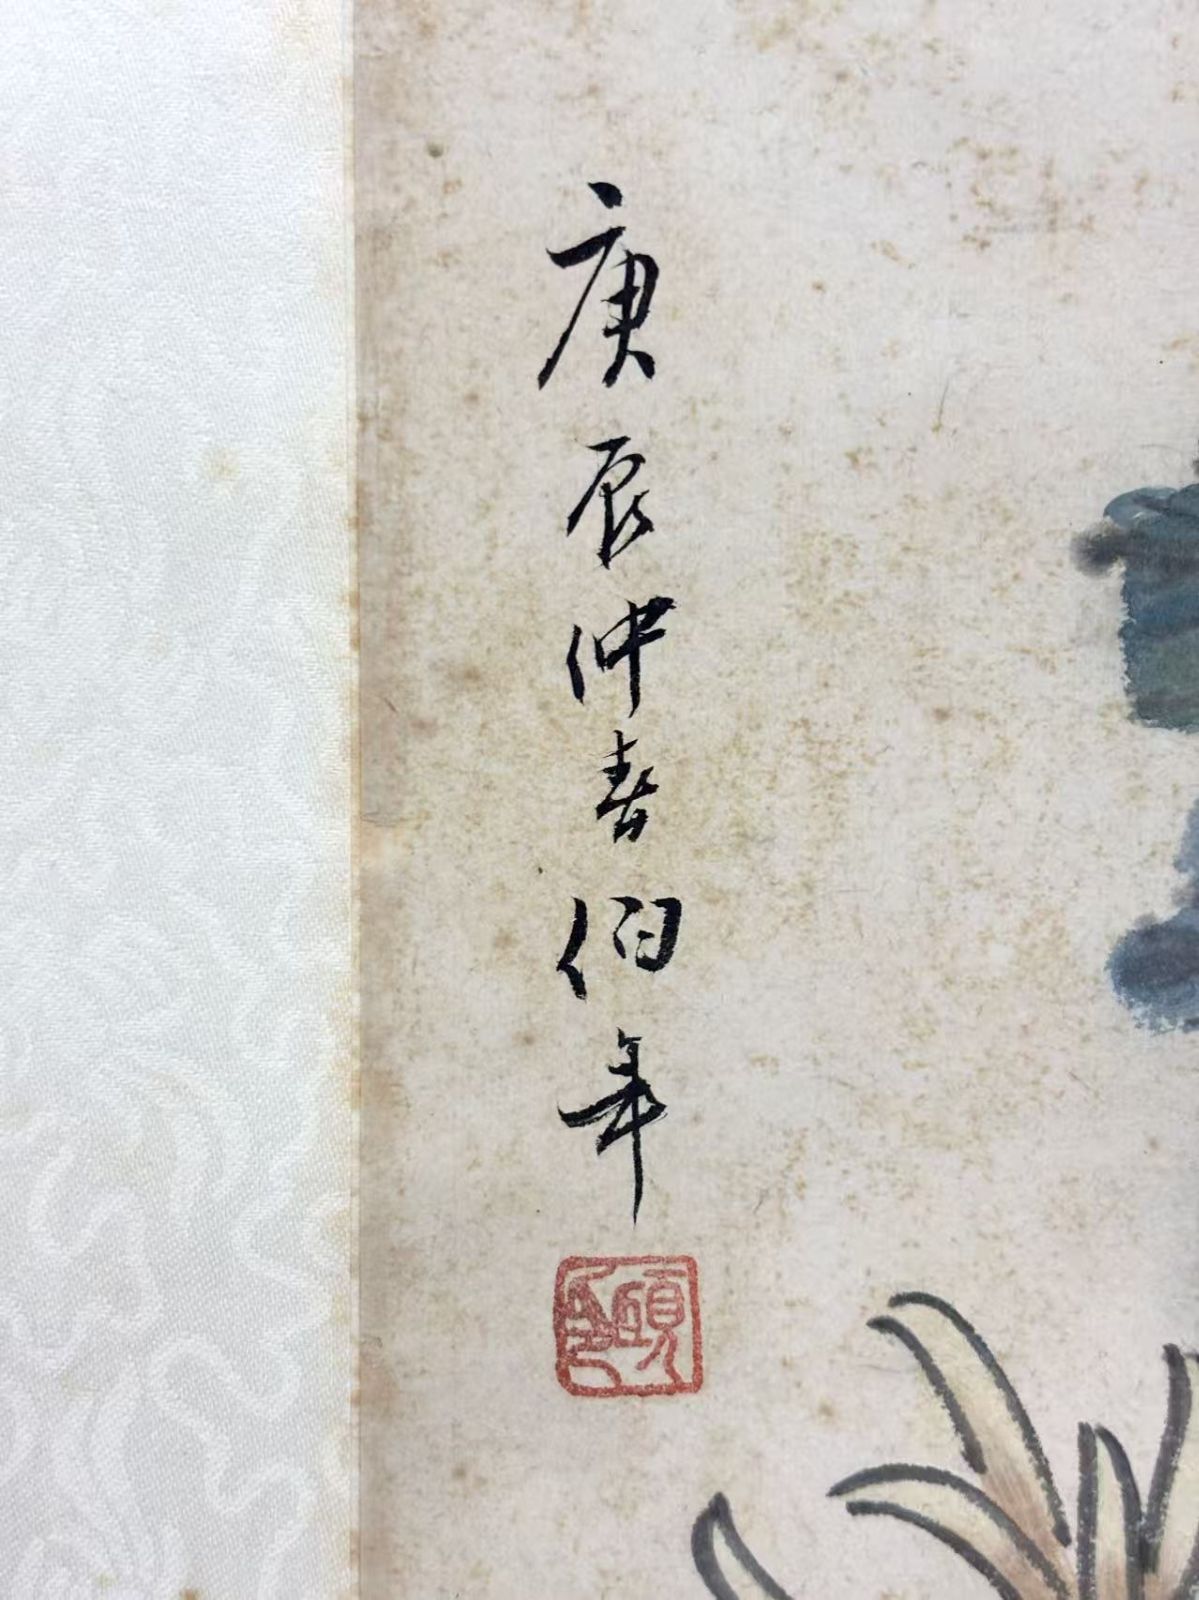 庚辰仲春伯年
頤印